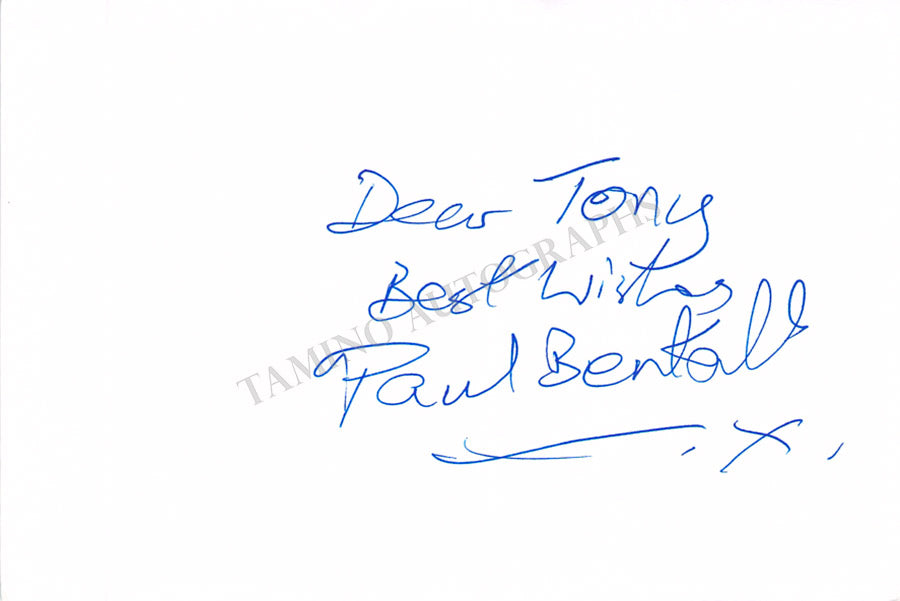 Dear Tony
Best Wishes
Paul Bentall
x.
TAMINO AUTOGRAPHS